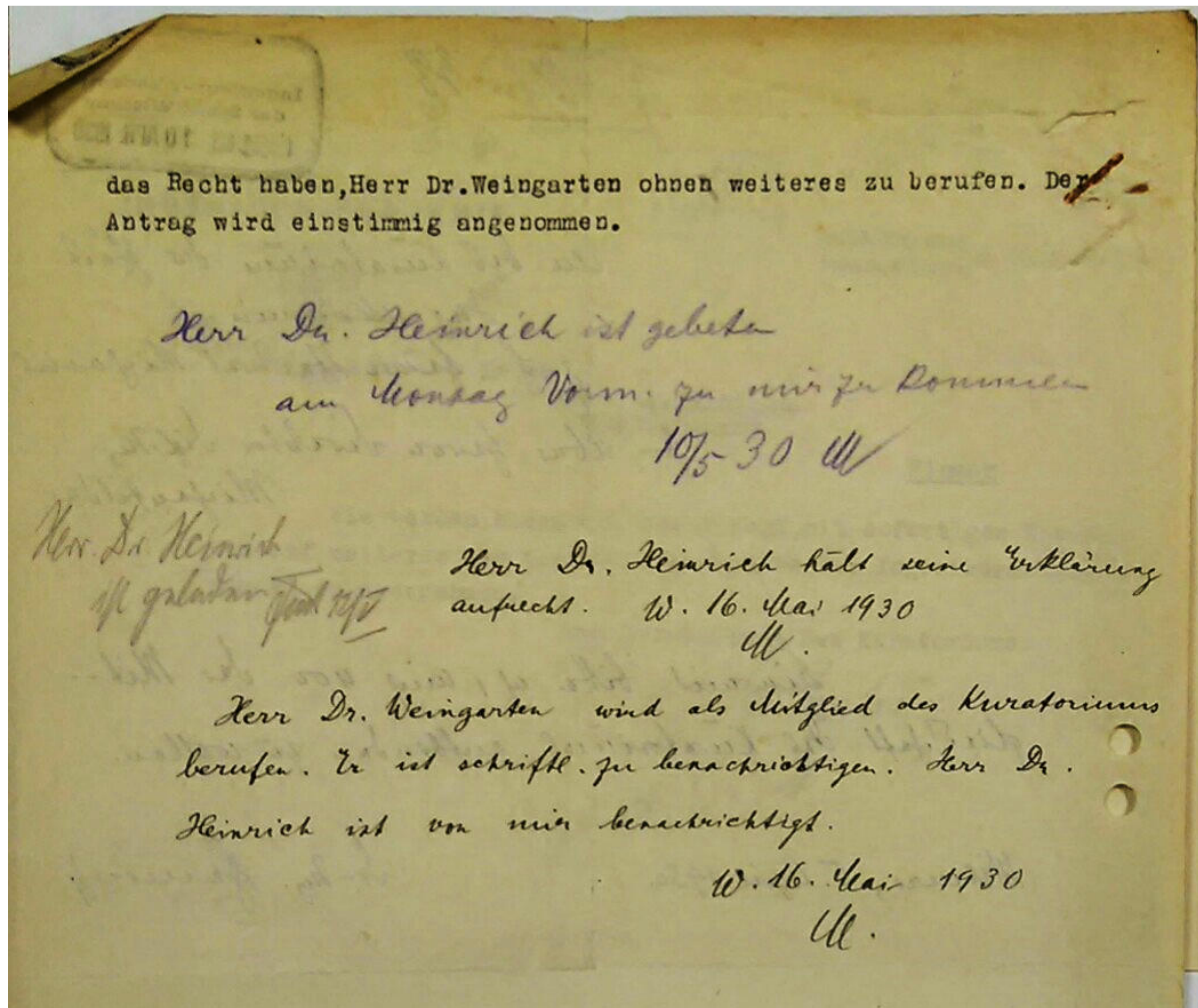 das Recht haben,Herr Dr.Weingarten ohnen weiteres zu berufen. Der
Antrag wird einstimmig angenommen.
Herr Dr. Heinrich ist gebeten
am Montag Vorm. zu mir zu kommen
10/5 30 M
Herr Dr Heinrich
ist geladen 12/V
Herr Dr. Heinrich hält seine Erklärung
aufrecht. W. 16. Mai 1930
M.
Herr Dr. Weingarten wird als Mitglied des Kuratoriums
berufen. Er ist schriftl. zu benachrichtigen. Herr Dr.
Heinrich ist von mir benachrichtigt.
W. 16. Mai 1930
M.